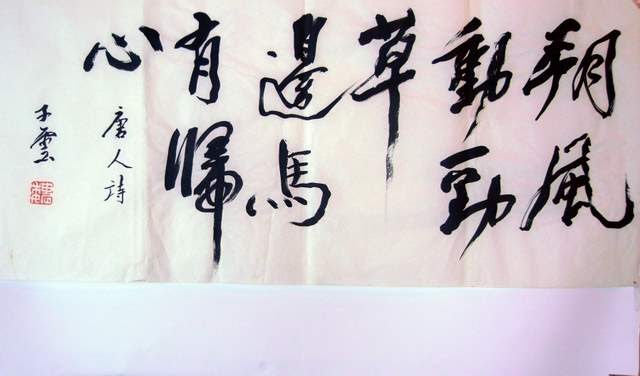 朔風
動勁
草
邊馬
有歸
心
唐人詩